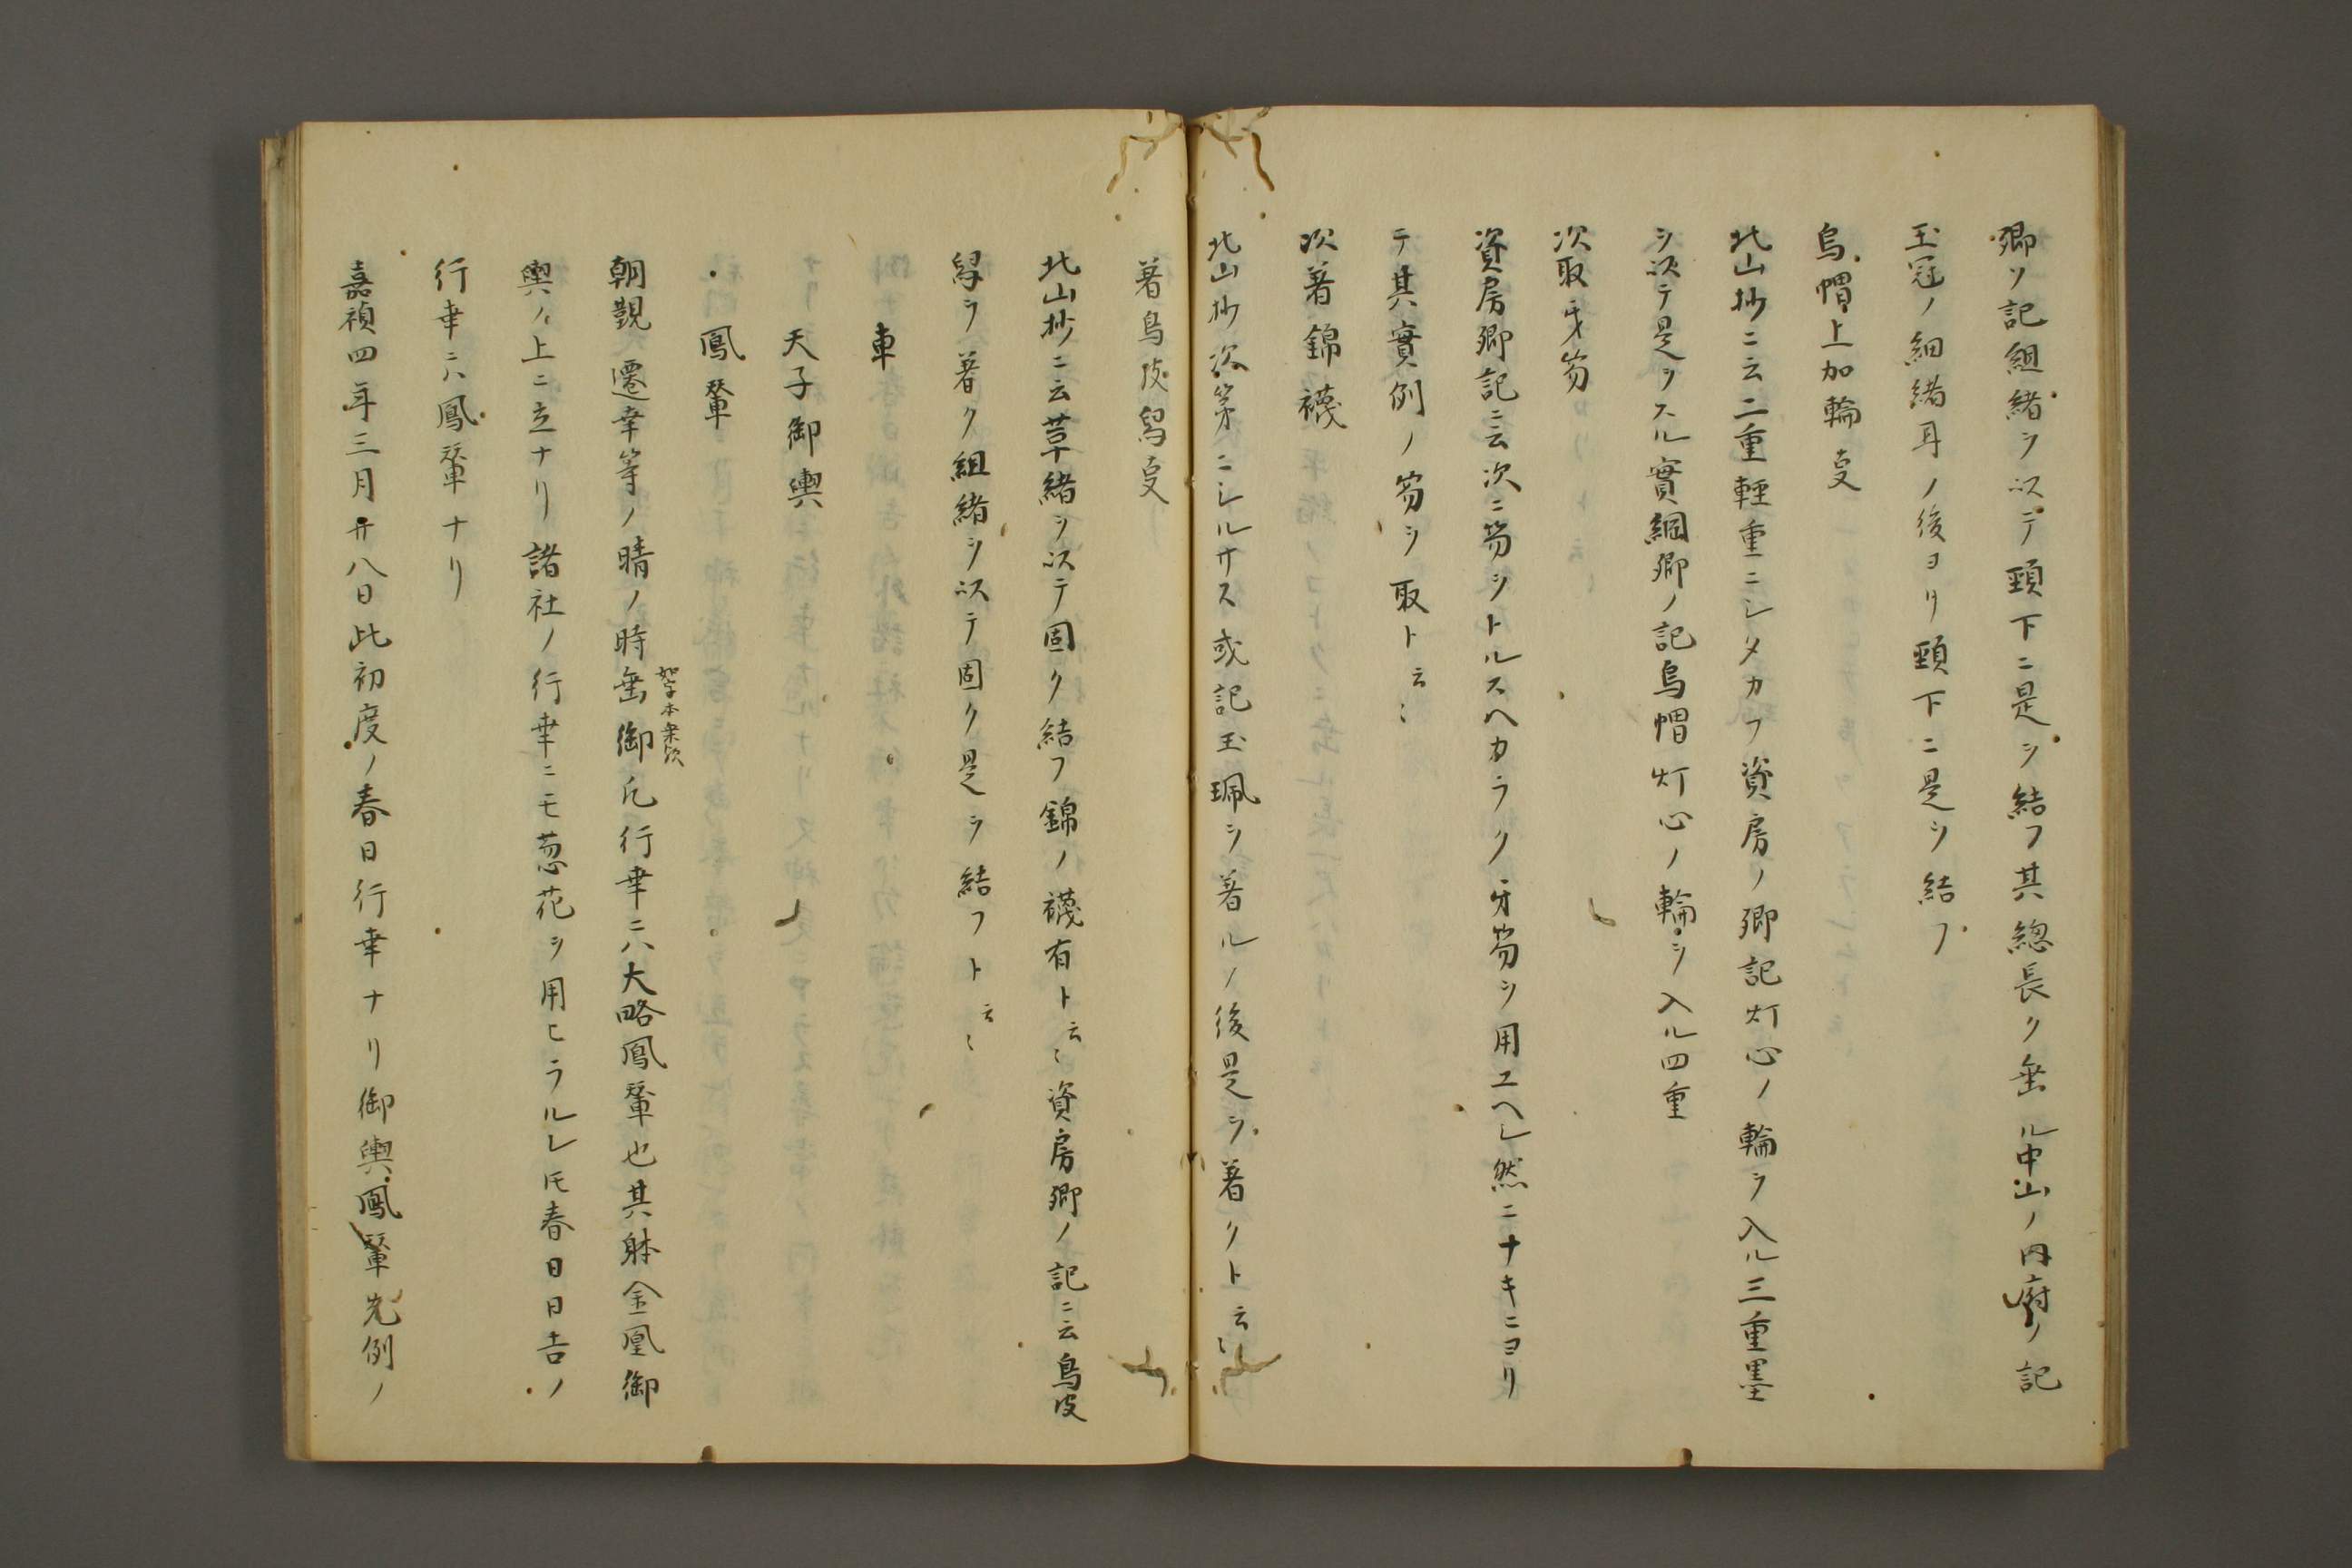 卿ノ記組緒ヲ以テ頸下ニ是ヲ結フ其總長ク垂ル中山ノ内府ノ記
玉冠ノ細緒耳ノ後ヨリ頸下ニ是ヲ結フ
烏帽上加輪叓
北山抄ニ云二重軽重ニシタカフ資房ノ卿記灯心ノ輪ヲ入ル三重墨
ヲ以テ是ヲスル實綱卿ノ記烏帽灯心ノ輪ヲ入ル四重
次取牙笏
資房卿記云次ニ笏ヲトルスヘカラク牙笏ヲ用ユヘシ然ニナキニヨリ
テ其實例ノ笏ヲ取ト云〻
次著錦襪
北山抄次第ニシルサス或記玉珮ヲ著ルノ後是ヲ著クト云〻
著烏皮舄叓
北山抄ニ云草緒ヲ以テ固ク結フ錦ノ襪有ト云〻資房卿ノ記ニ云烏皮
舄ヲ著ク組緒ヲ以テ固ク是ヲ結フト云〻
車
天子御輿
鳳輦
朝覲遷幸等ノ晴ノ時垂御凡行幸ニハ大略鳳輦也其躰金凰御
如字本乗歟
輿ノ上ニ立ナリ諸社ノ行幸ニモ葱花ヲ用ヒラルレ㕝春日日吉ノ
行幸ニハ鳳輦ナリ
嘉禎四年三月廾八日此初度ノ春日行幸ナリ御輿鳳輦先例ノ